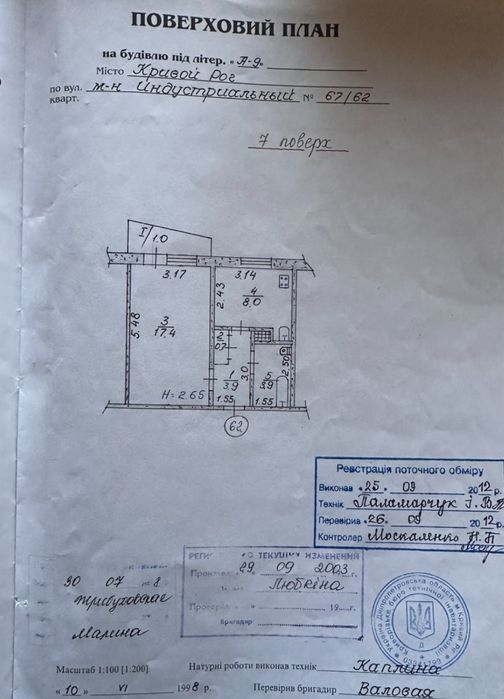 ПОВЕРХОВИЙ ПЛАН
на будівлю під літер. « А-9»
Місто Кривой Рог
по вул. ж-н Индустриальный № 67/62
кварт.
7 поверх
I/1.0
3.17
3.14
2.43
4/8.0
5.48
3/17.4
2/0.7
1/3.9
3.0
5/3.9
2.50
H=2.65
1.55
1.55
62
Реєстрація поточного обміру
Виконав «25» 09 2012 р.
Технік Паламарчук І. В.
Перевірив «26» 09 2012 р.
Контролер Москаленко Н. П
ТЕКУЩИХ ИЗМЕНЕНИЙ
29 09 2003
Любкіна
19 г.
Бригадир
30 07
Марина
Масштаб 1:100 [1:200]
Натурні роботи виконав технік Каплина
« 10 » VI 1998 р.
Перевірив бригадир Валовая